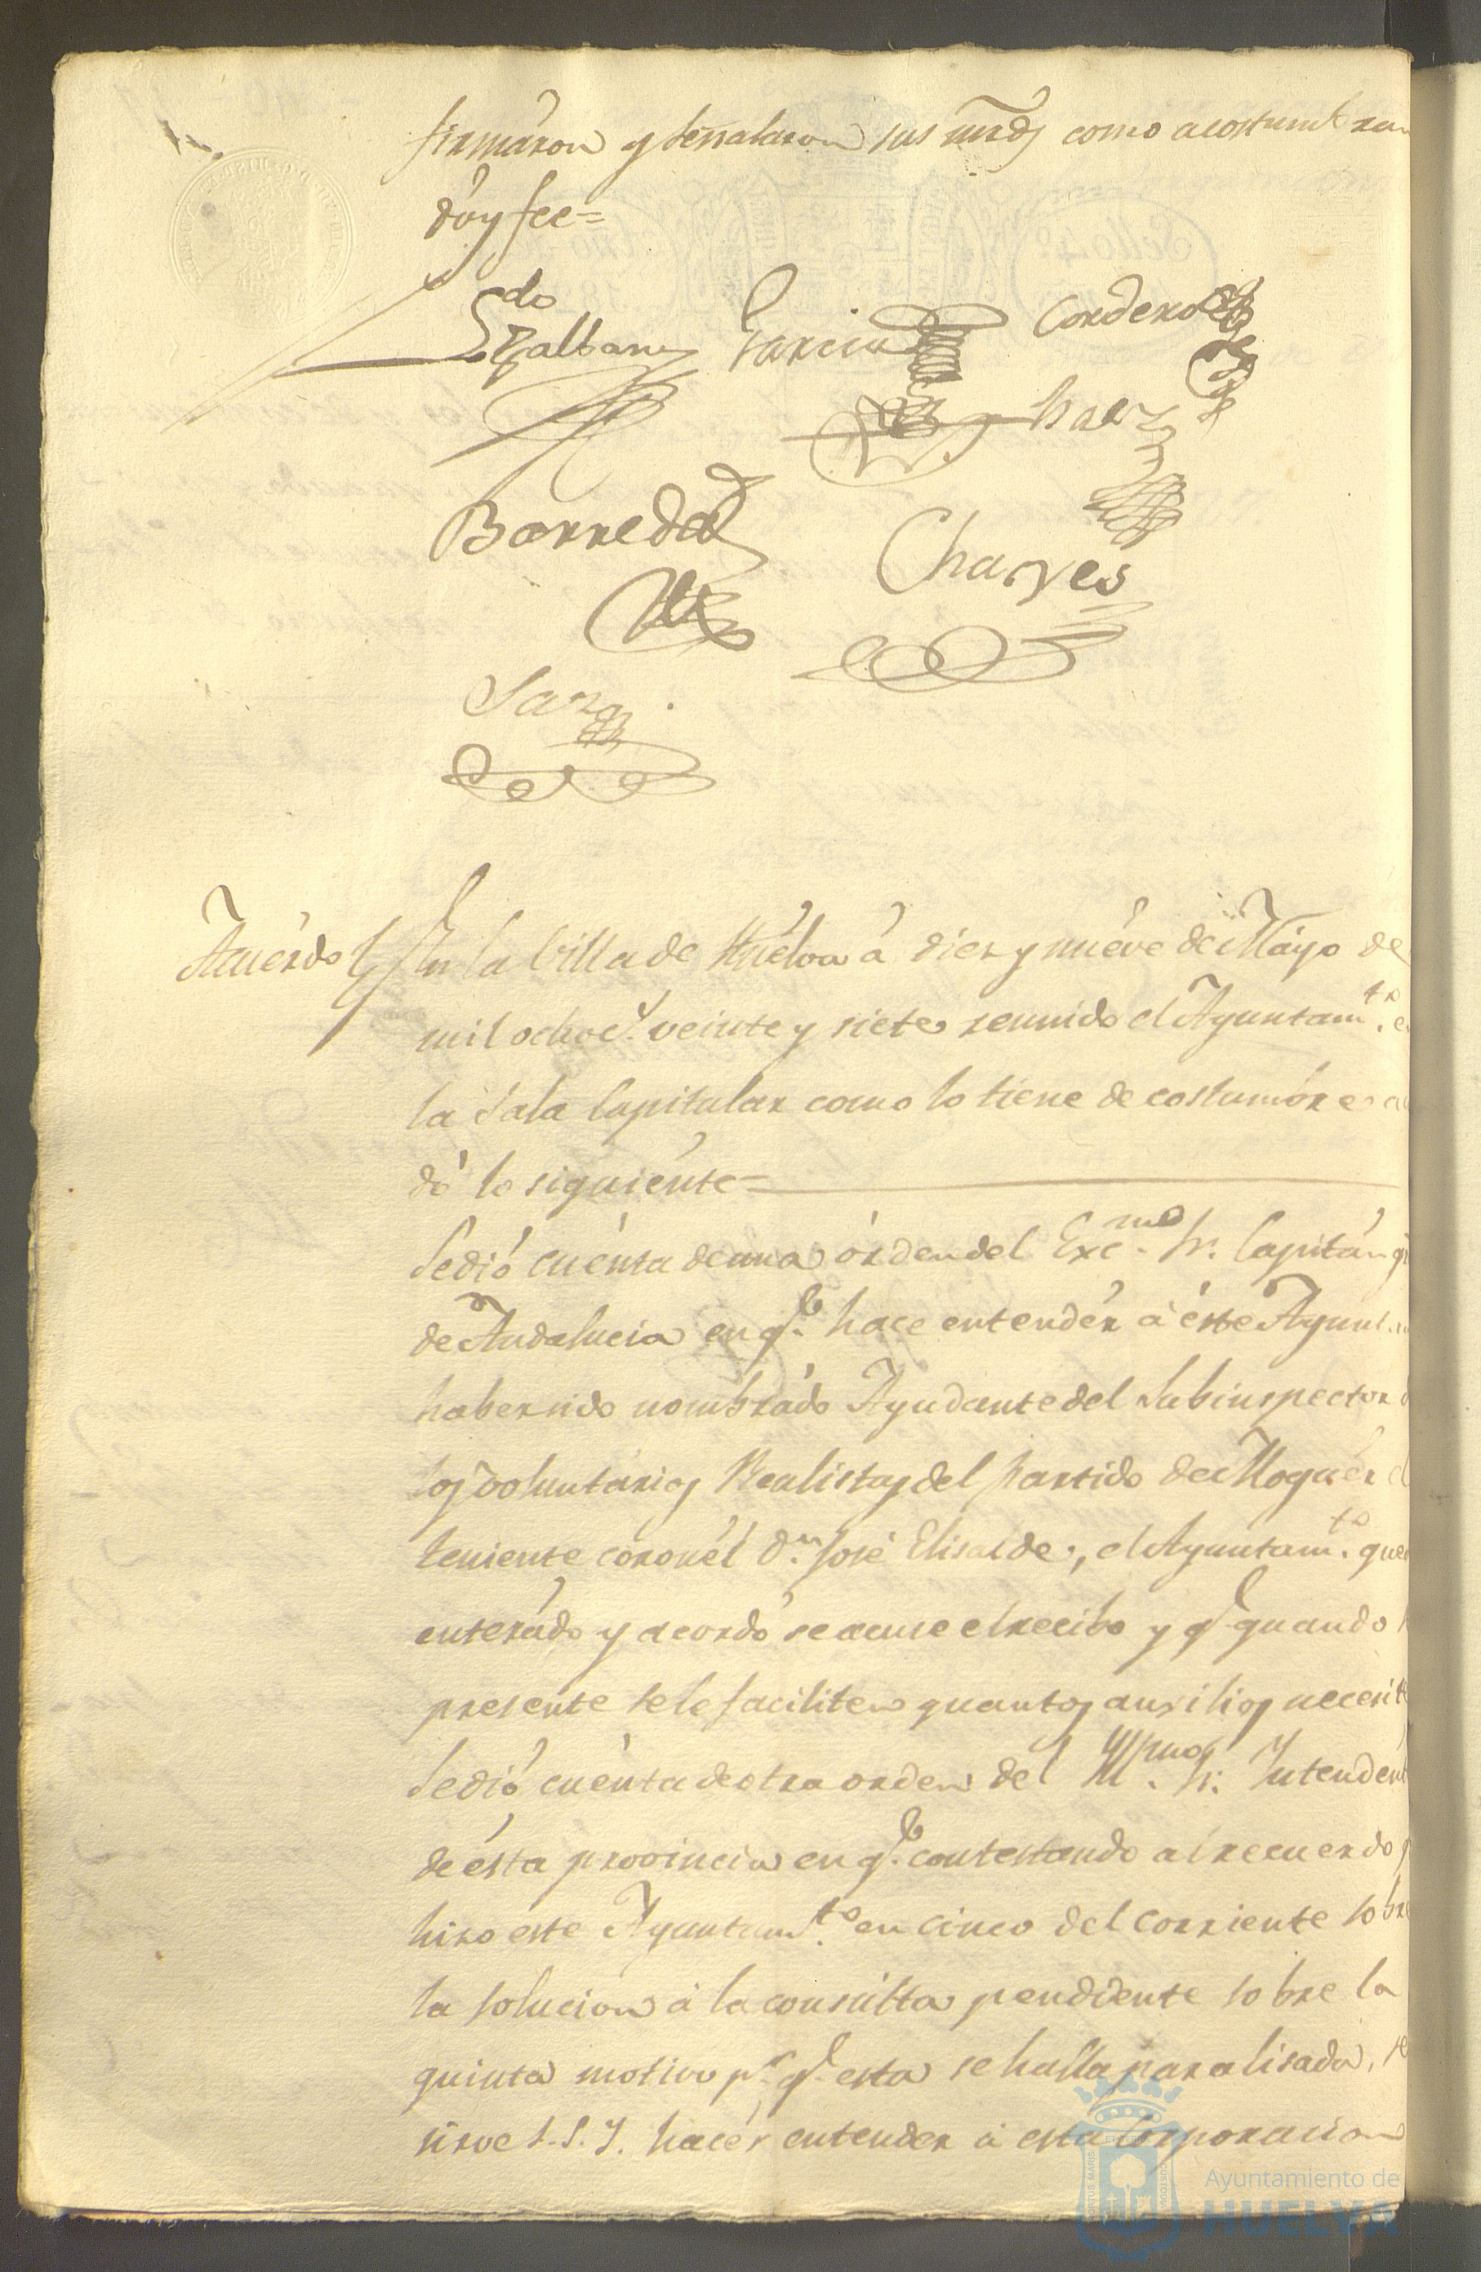 firmáron y señalaron sus mrds como acostumbran
dóy fee=
Ldo
Garcia
Cordero
Barreda
Charves
Saez
Acuérdo En la Villa de Huélva á diez y nuéve de Máyo de
mil ochocs. veinte y siete reunido el Ayuntamto. en
la Sala Capitular como lo tiene de costumbre
dó lo siguiénte=
Se dió cuénta de una órden del Excmo. Sr. Capitán
de Andalucia en qe. hace entendér á éste Ayunt
haber sido nombrádo Ayudante del Subinspector
los voluntários Realistas del partido de Moguér
teniente coronél Dn. José Elisalde, el Ayuntamto.
enterádo y acordó se acuse el recibo y qe quando
presente se le faciliten quantos ausilios necesite
Se dió cuénta de otra orden del Yllmo. Sr. Yntendent
de ésta provincia en qe. contestando al recuerdo
hizo este Ayuntamto. en cinco del corriente sobre
la solucion á la consulta pendiente sobre la
quinta motivo pr. qe. esta se halla paralisada, se
sirve S.S.Y. hacér entender á esta Corporacion
Ayuntamiento de
HUELVA